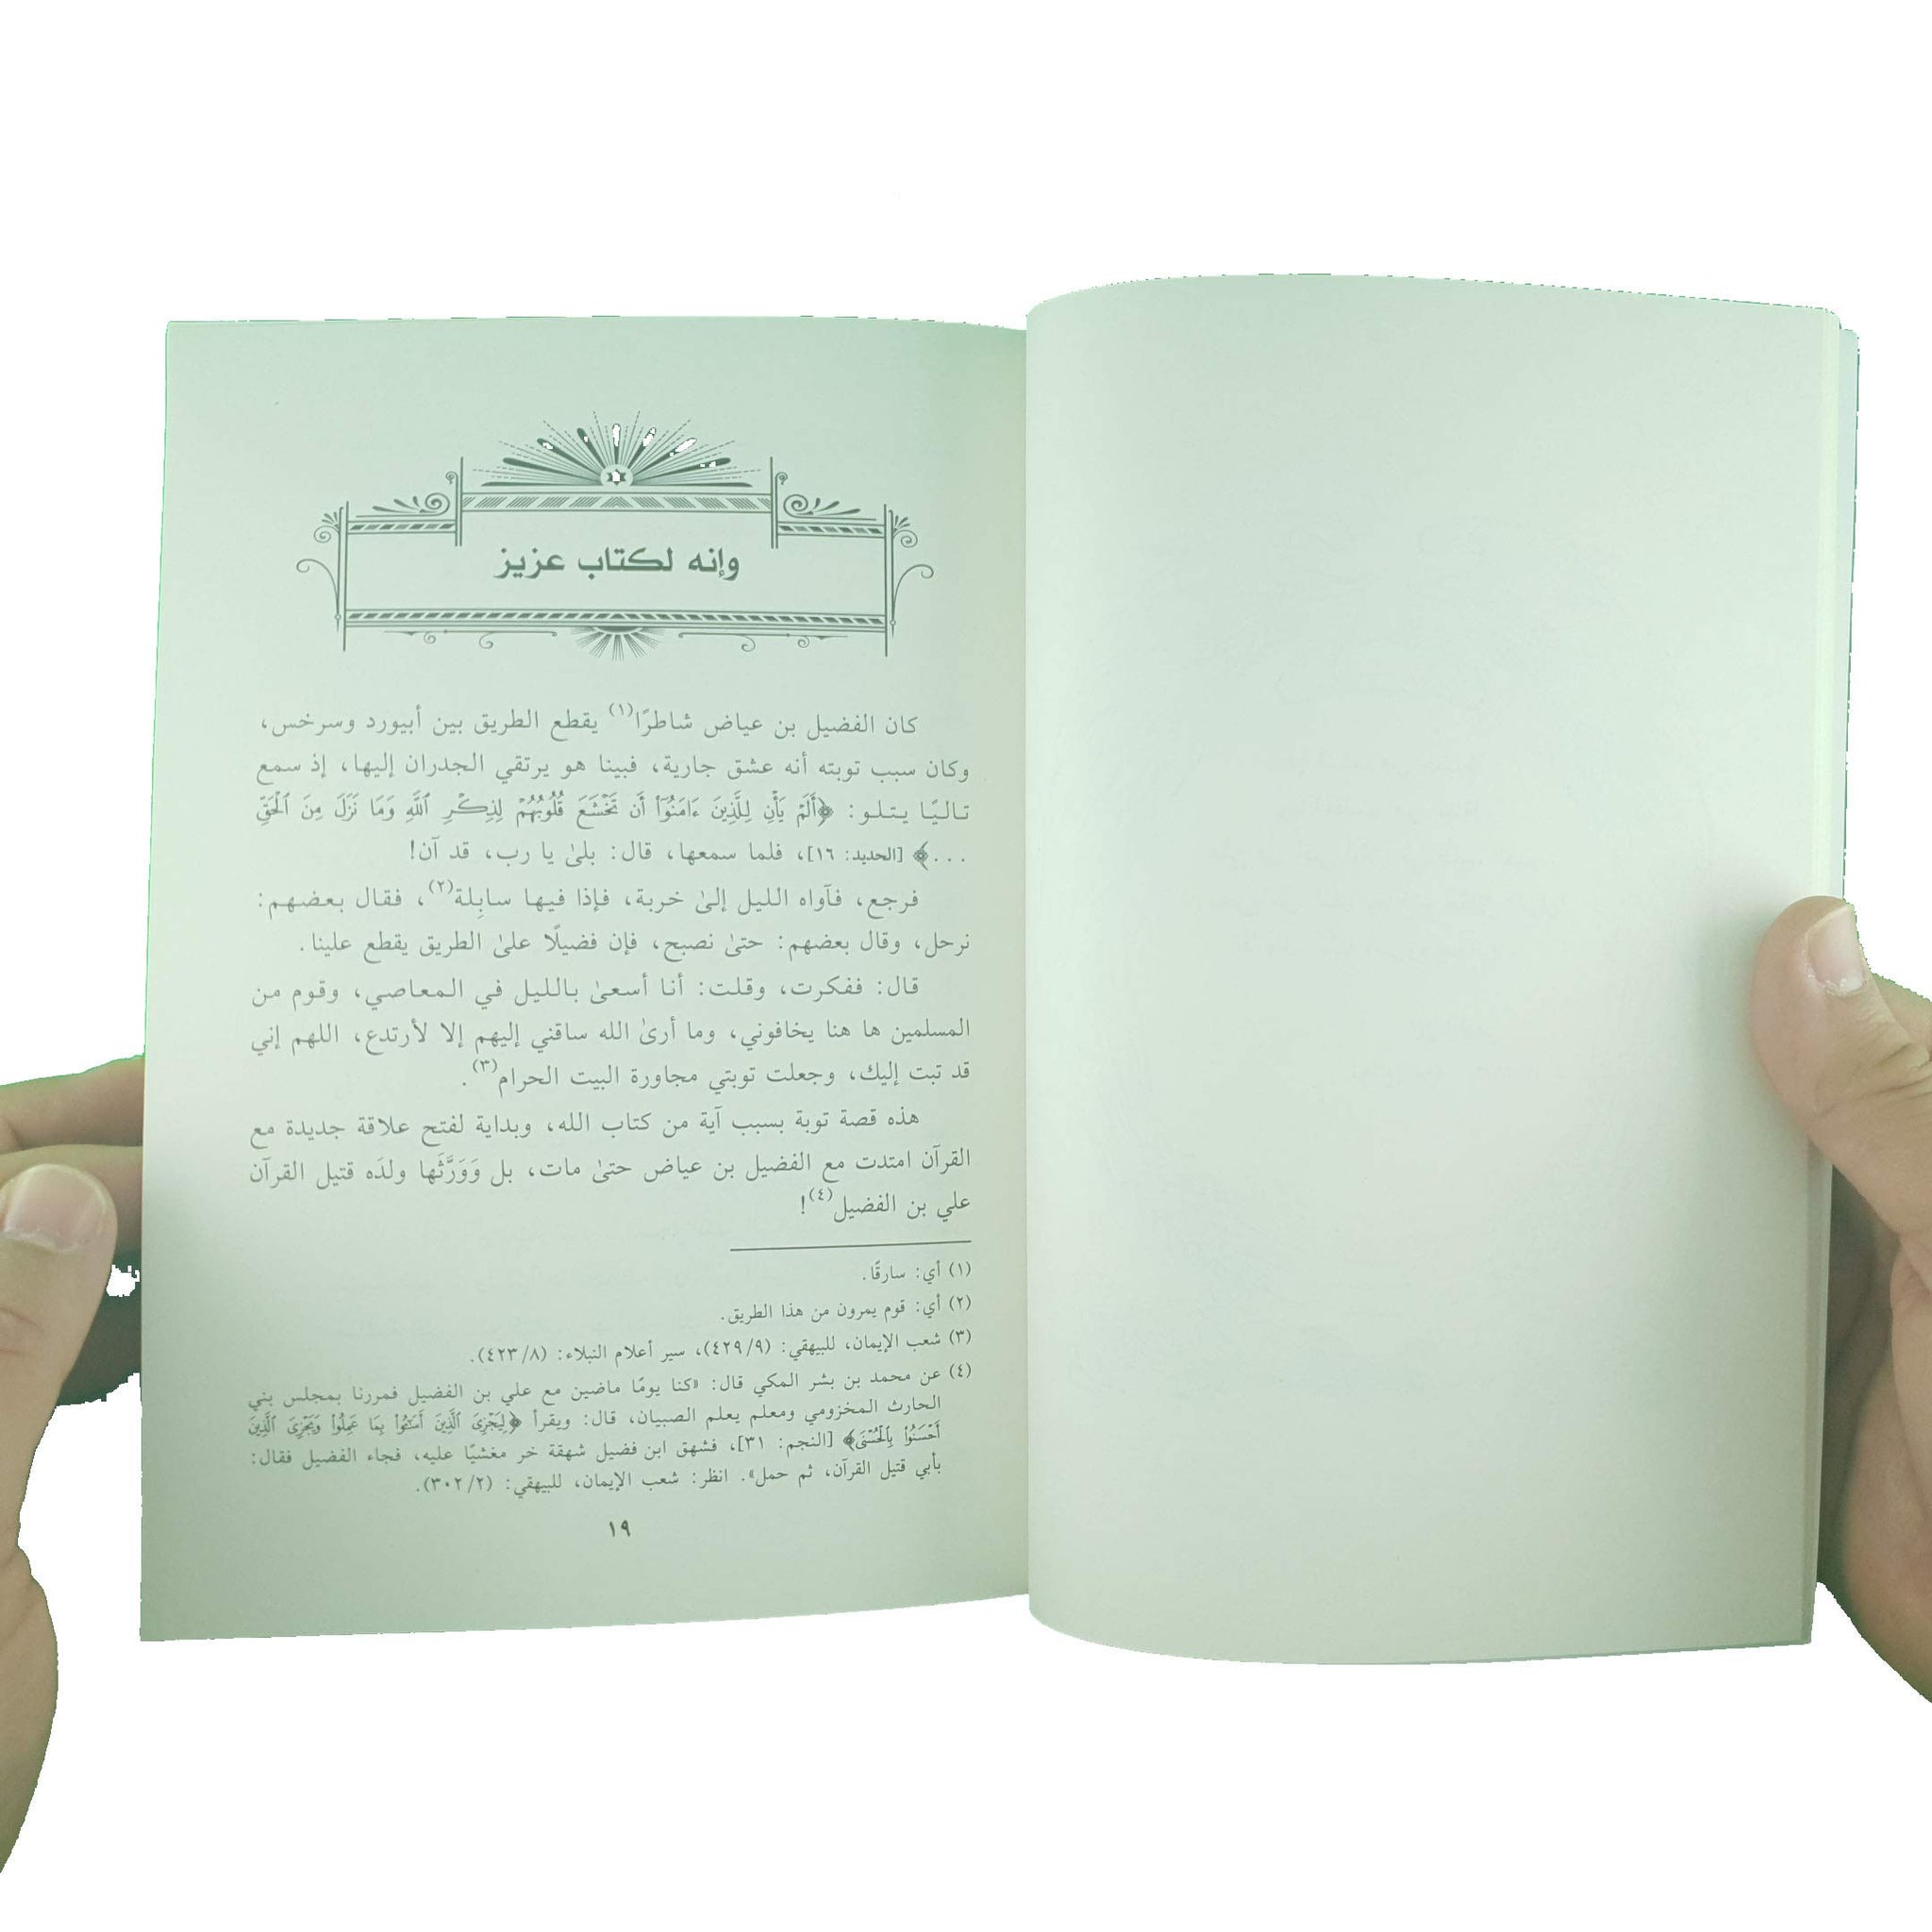 وإنه لكتاب عزيز
كان الفضيل بن عياض شاطرًا(١) يقطع الطريق بين أبيورد وسرخس،
وكان سبب توبته أنه عشق جارية، فبينا هو يرتقي الجدران إليها، إذ سمع
تاليًا يتلو: ﴿أَلَمْ يَأْنِ لِلَّذِينَ ءَامَنُوٓا۟ أَن تَخْشَعَ قُلُوبُهُمْ لِذِكْرِ ٱللَّهِ وَمَا نَزَلَ مِنَ ٱلْحَقِّ
...﴾ [الحديد: ١٦]، فلما سمعها، قال: بلىٰ يا رب، قد آن!
فرجع، فآواه الليل إلىٰ خربة، فإذا فيها سابِلة(٢)، فقال بعضهم:
نرحل، وقال بعضهم: حتىٰ نصبح، فإن فضيلًا علىٰ الطريق يقطع علينا.
قال: ففكرت، وقلت: أنا أسعىٰ بالليل في المعاصي، وقوم من
المسلمين ها هنا يخافوني، وما أرىٰ الله ساقني إليهم إلا لأرتدع، اللهم إني
قد تبت إليك، وجعلت توبتي مجاورة البيت الحرام(٣).
هذه قصة توبة بسبب آية من كتاب الله، وبداية لفتح علاقة جديدة مع
القرآن امتدت مع الفضيل بن عياض حتىٰ مات، بل وَوَرَّثَها ولدَه قتيل القرآن
علي بن الفضيل(٤)!
(١) أي: سارقًا.
(٢) أي: قوم يمرون من هذا الطريق.
(٣) شعب الإيمان، للبيهقي: (٤٢٩/٩)، سير أعلام النبلاء: (٤٢٣/٨).
(٤) عن محمد بن بشر المكي قال: «كنا يومًا ماضين مع علي بن الفضيل فمررنا بمجلس بني
الحارث المخزومي ومعلم يعلم الصبيان، قال: ويقرأ ﴿لِيَجْزِىَ ٱلَّذِينَ أَسَٰٓـُٔوا۟ بِمَا عَمِلُوا۟ وَيَجْزِىَ ٱلَّذِينَ
أَحْسَنُوا۟ بِٱلْحُسْنَى﴾ [النجم: ٣١]، فشهق ابن فضيل شهقة خر مغشيًا عليه، فجاء الفضيل فقال:
بأبي قتيل القرآن، ثم حمل». انظر: شعب الإيمان، للبيهقي: (٣٠٢/٢).
١٩